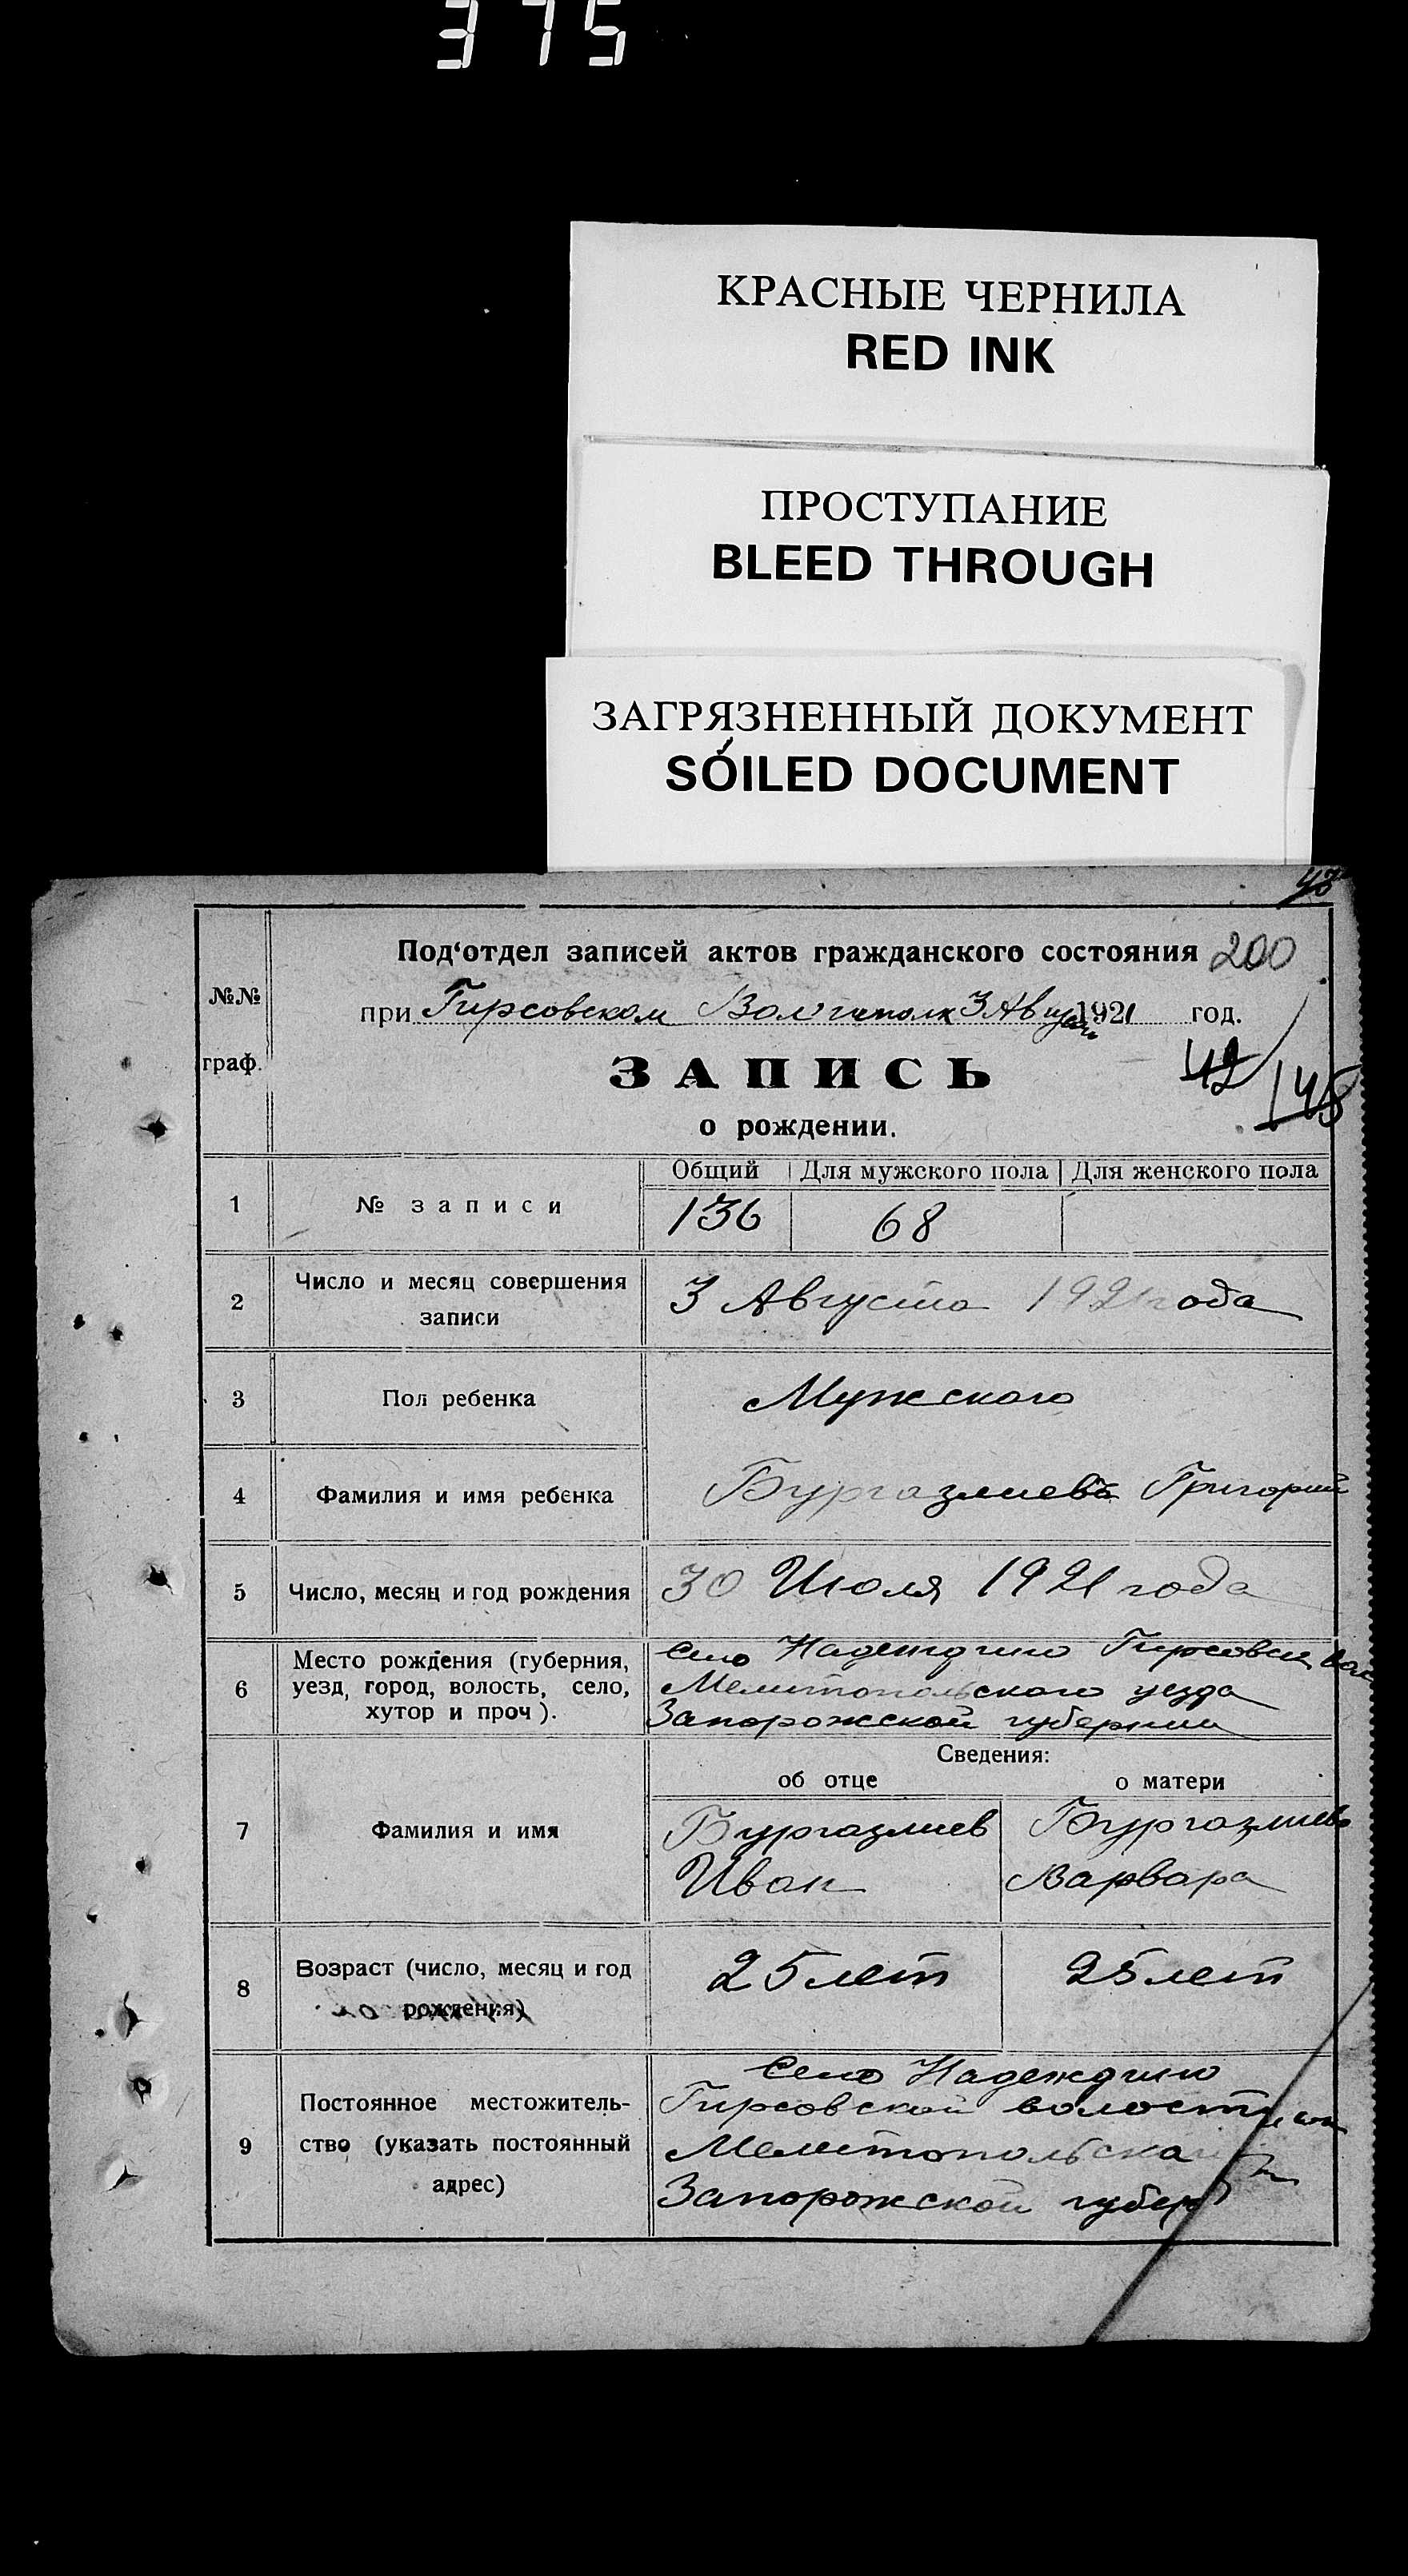 375
КРАСНЫЕ ЧЕРНИЛА
RED INK
ПРОСТУПАНИЕ
BLEED THROUGH
ЗАГРЯЗНЕННЫЙ ДОКУМЕНТ
SOILED DOCUMENT
43
Под‘отдел записей актов гражданского состояния 200
№№ граф.
при Гирсовском 3 Август 1921 год.
42
145
ЗАПИСЬ
о рождении.
Общий Для мужского пола Для женского пола
1 № записи 136 68
2 Число и месяц совершения записи 3 Августа 1921 года
3 Пол ребенка Мужского
4 Фамилия и имя ребенка Бургазлиевъ Григорий
5 Число, месяц и год рождения 30 Июля 1921 года
6 Место рождения (губерния, уезд, город, волость, село, хутор и проч).
Село Надеждино Гирсовск Вол
Мелитопольского уезда
Запорожской губернии
Сведения:
об отце о матери
7 Фамилия и имя
Бургазлиев Бургазлиева
Иван Варвара
8 Возраст (число, месяц и год рождения) 25 лет 25 лет
9 Постоянное местожительство (указать постоянный адрес)
Село Надеждино
Гирсовской волости
Мелитопольска
Запорожской губер